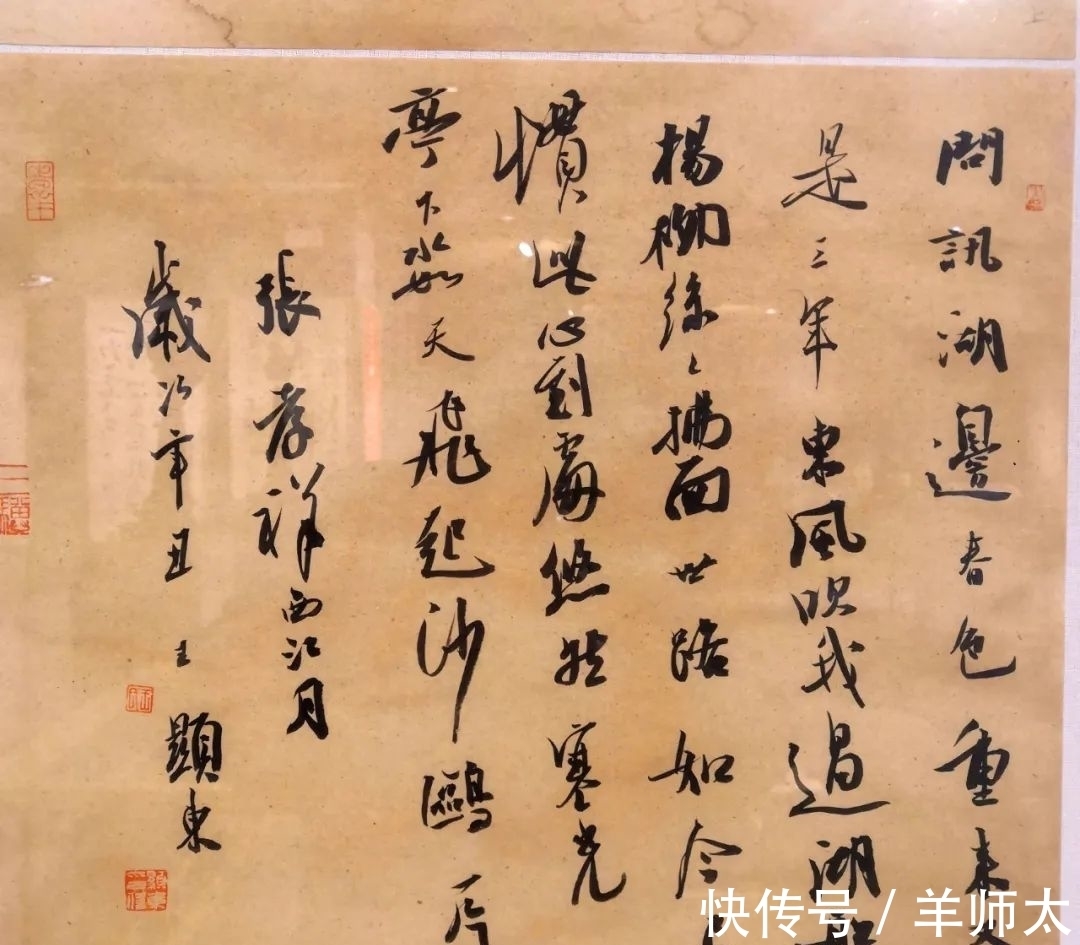 問訊湖邊春色重來
是三年東風吹我過湖
楊柳絲々拂面世路如今
慣此心到處悠然寒光
亭下水如天飛起沙鷗一片
張孝祥西江月
歲次辛丑王顯東
快传号 / 羊师太